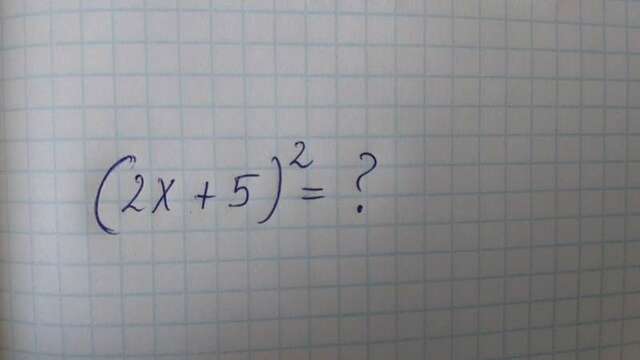 (2x + 5)² = ?